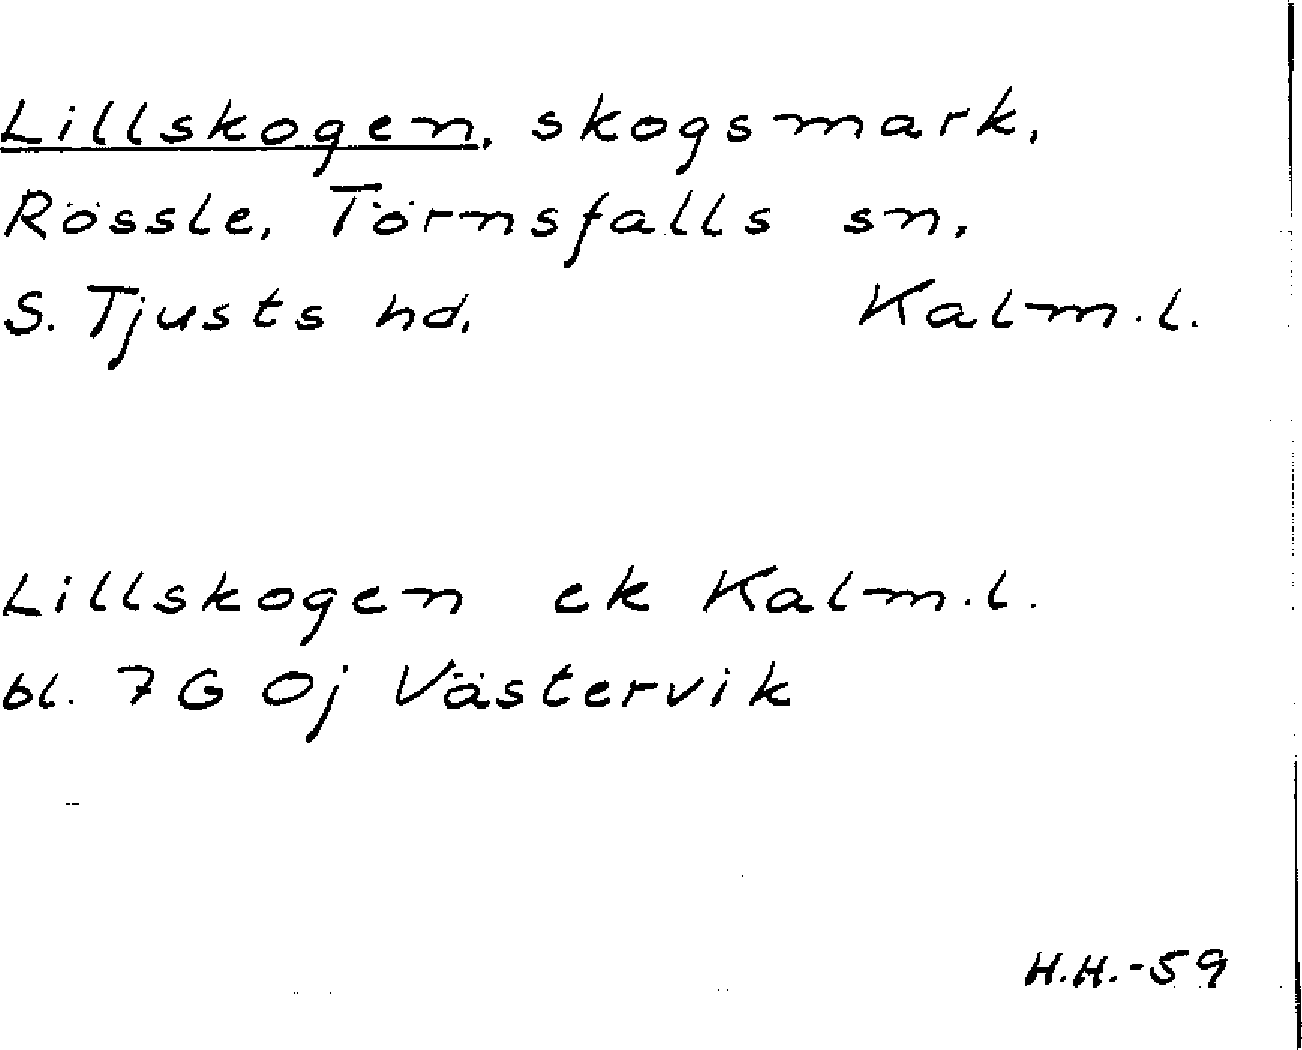 Lillskogen, skogsmark,
Rössle, Törnsfalls sn,
S. Tjusts hd. Kalm.l.
Lillskogen ek Kalm.l.
bl. 7G Oj Västervik
H.H.-59